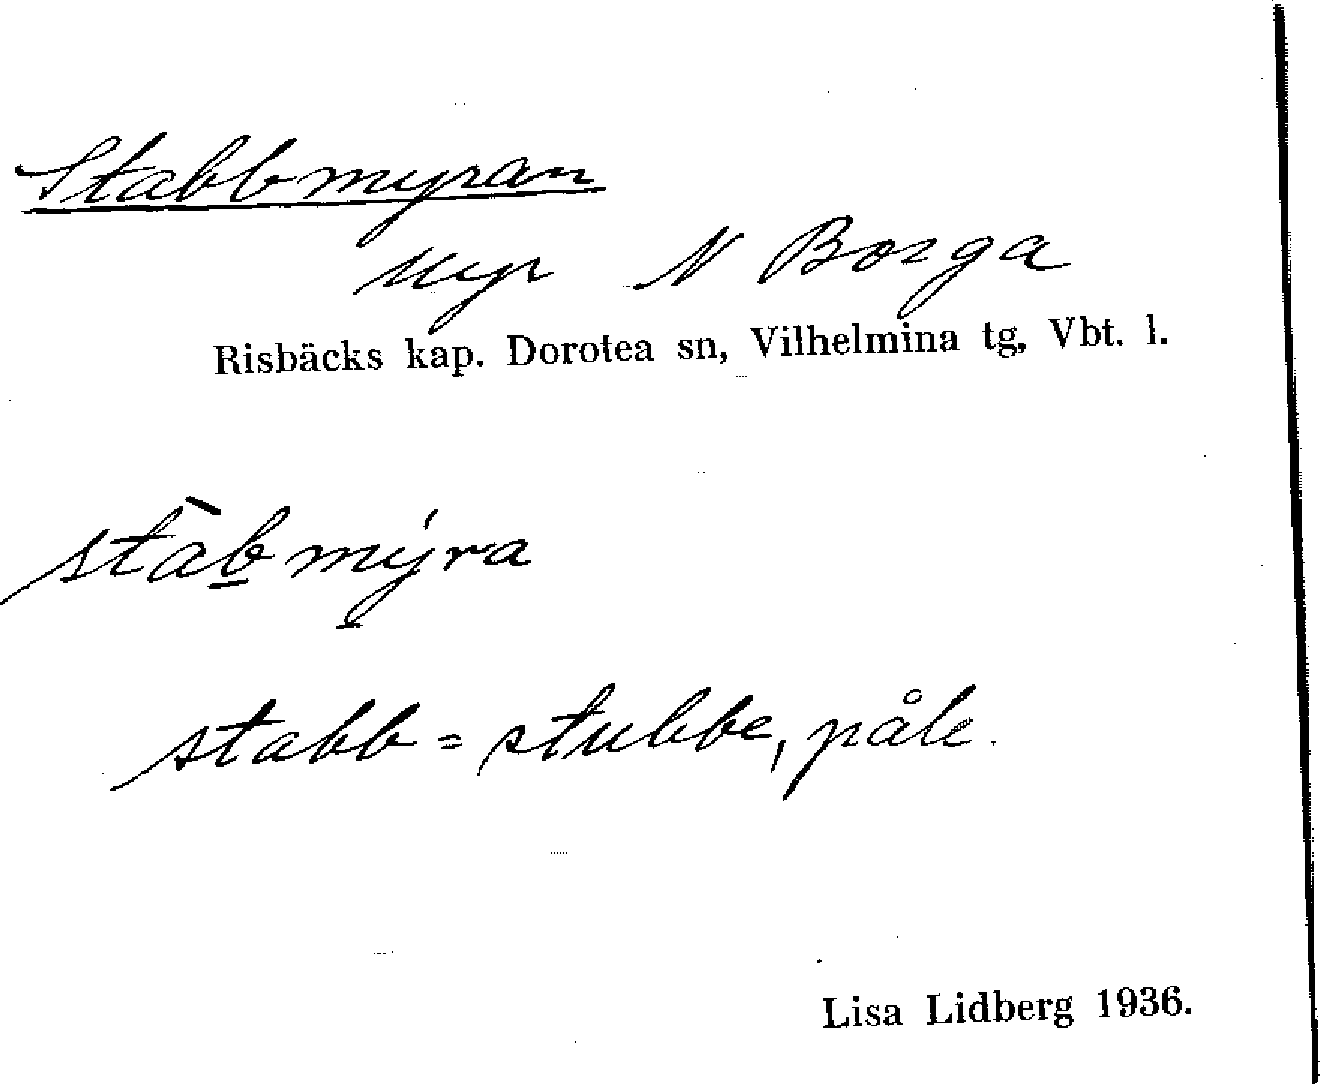 Stabbmyran
Myr N Borga
Risbäcks kap. Dorotea sn, Vilhelmina tg, Vbt. l.
stàb̲mýra
stabb = stubbe, påle.
Lisa Lidberg 1936.